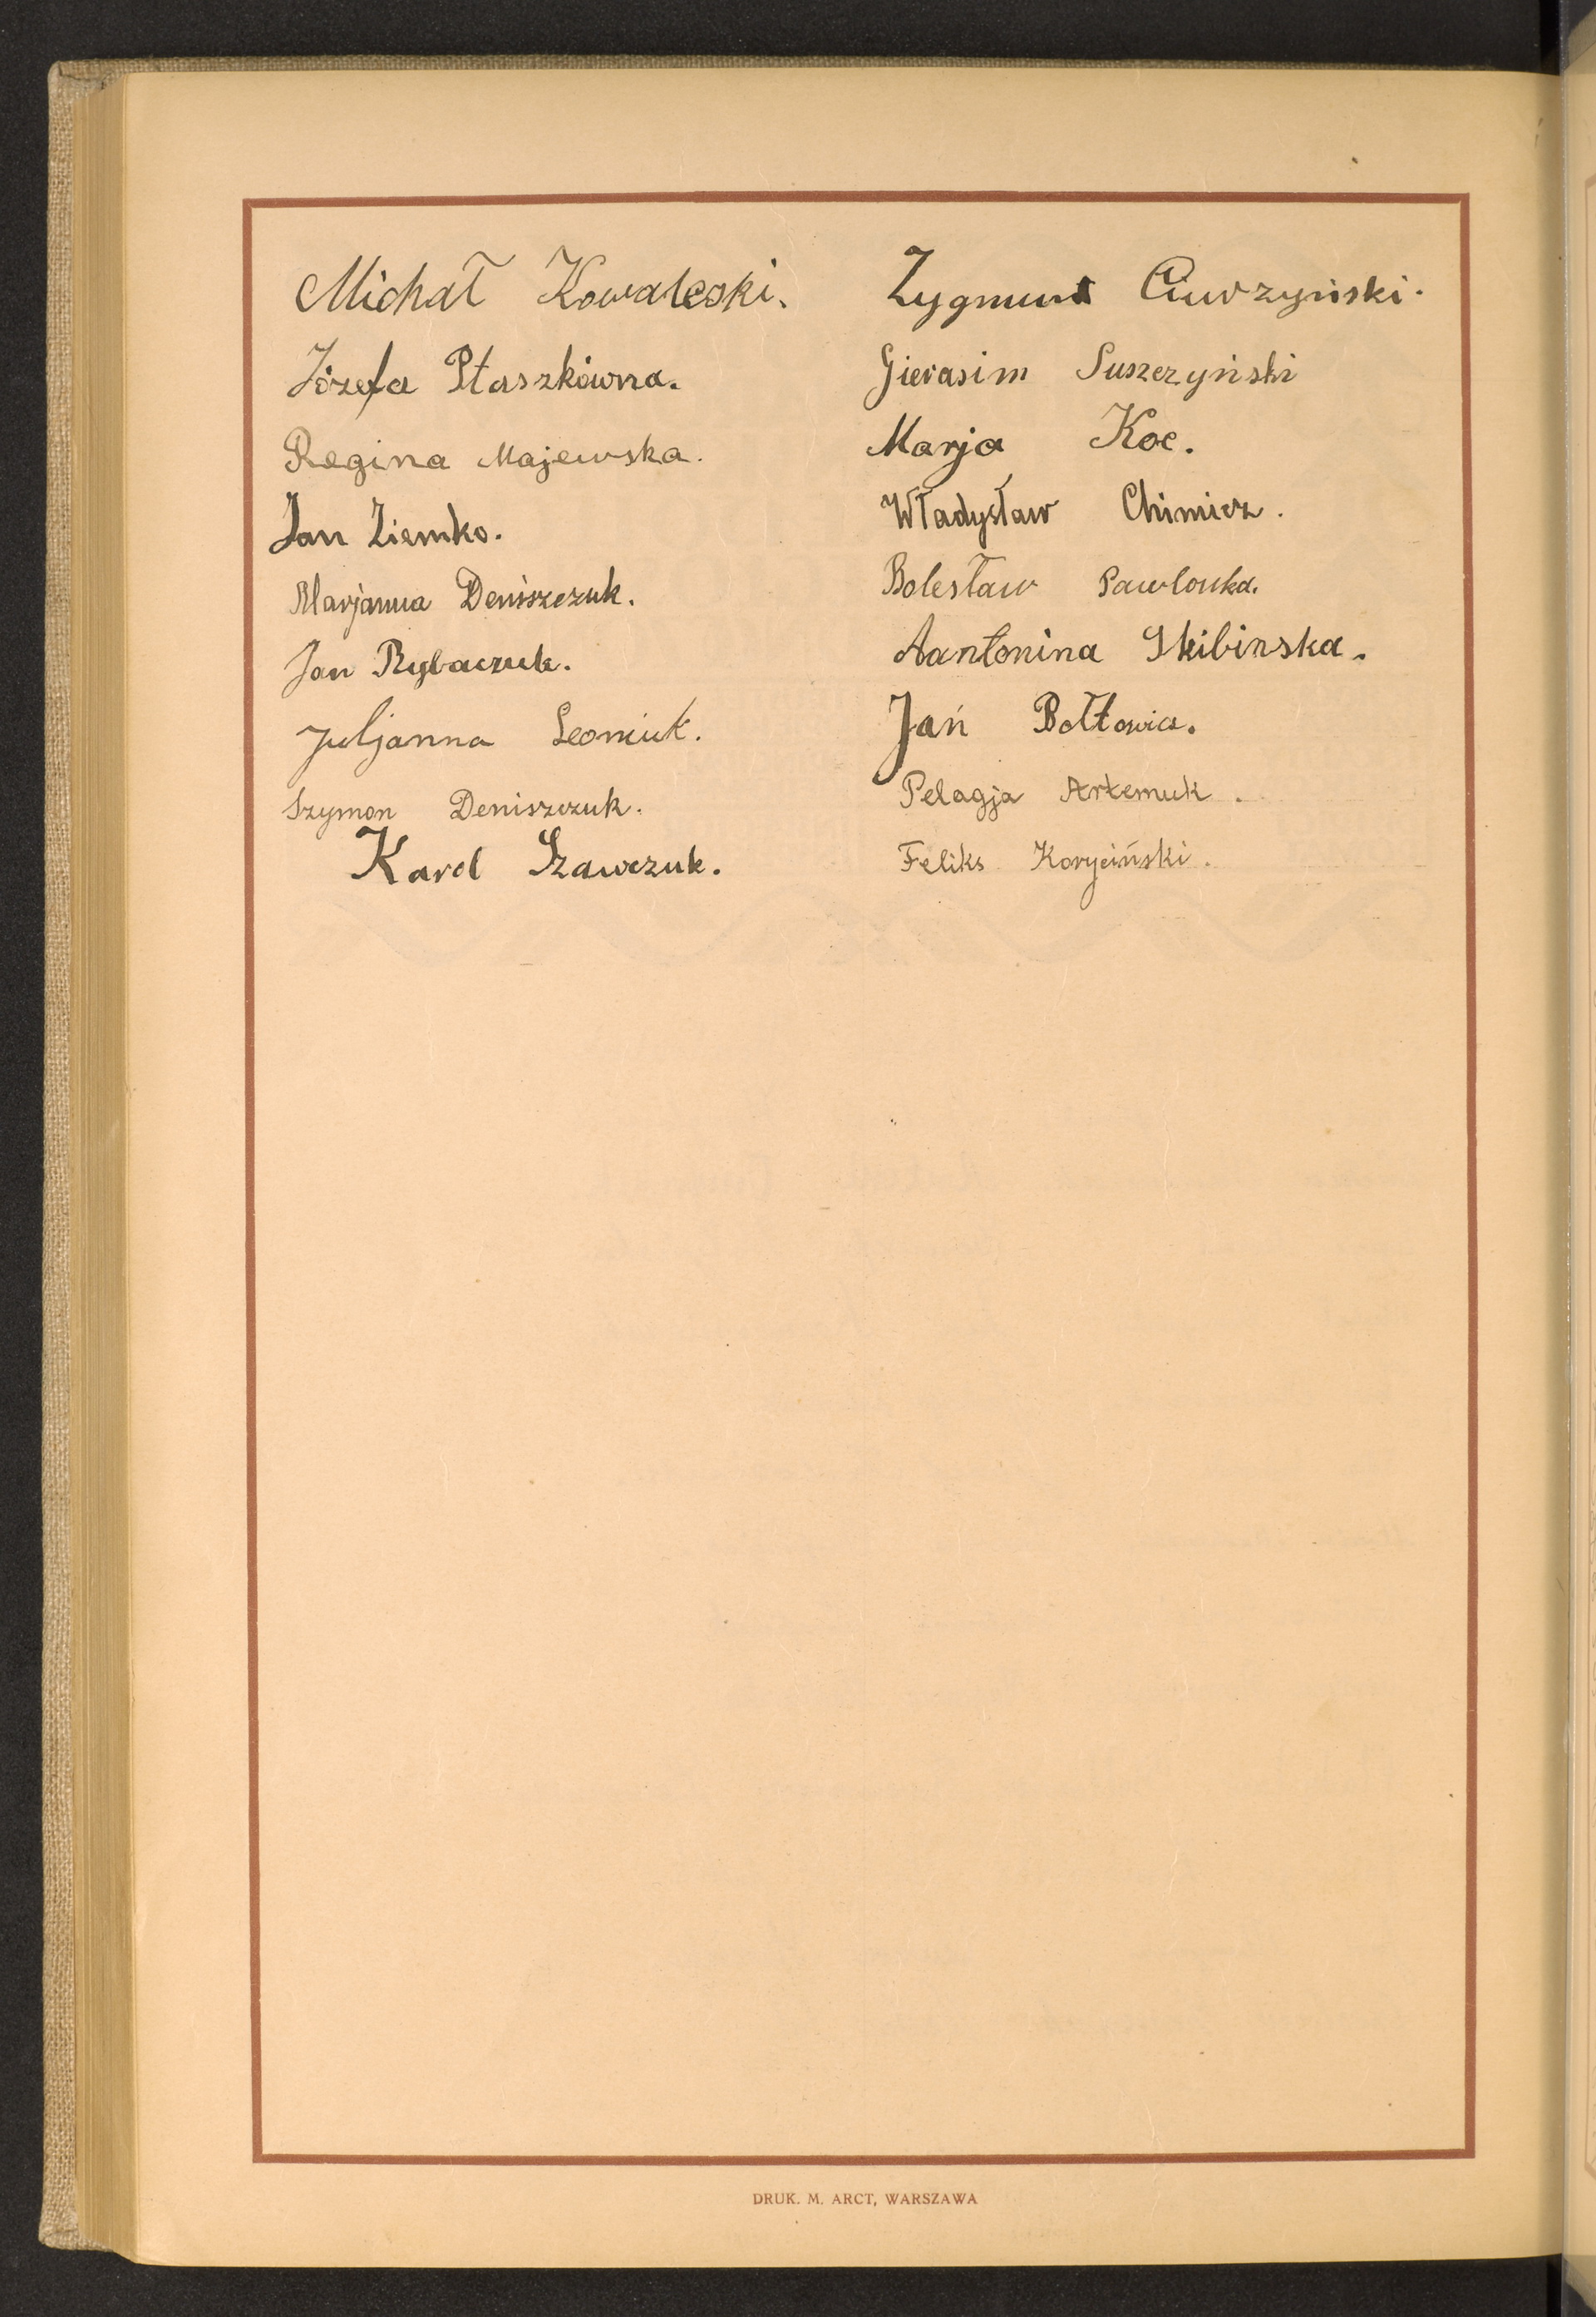 Michał Kowaleski.
Józefa Ptaszkówna.
Regina Majewska.
Jan Ziemko.
Marjanna Deniszczuk.
Jan Rybaczuk.
Juljanna Leoniuk.
Szymon Deniszczuk.
Karol Szawczuk.
Zygmunt Ciurzyński.
Gierasim Suszczyński
Marja Koc.
Władysław Chimicz.
Bolesław Pawlonka.
Aantonina Skibinska.
Jań Bołtowicz.
Pelagja Artemuk.
Feliks Koryciński.
DRUK. M. ARCT, WARSZAWA